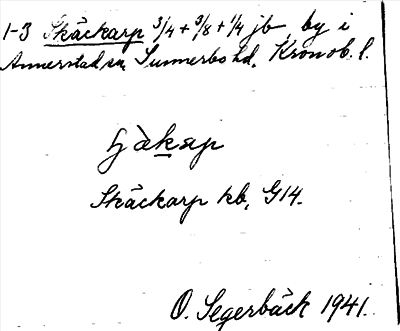 1-3 Skäckarp 3/4 + 3/8 + 1/4 jb, by i
Annerstad sn, Sunnerbo hd, Kronob. l.
Skäckarp kb, G14.
O. Segerbäck 1941.